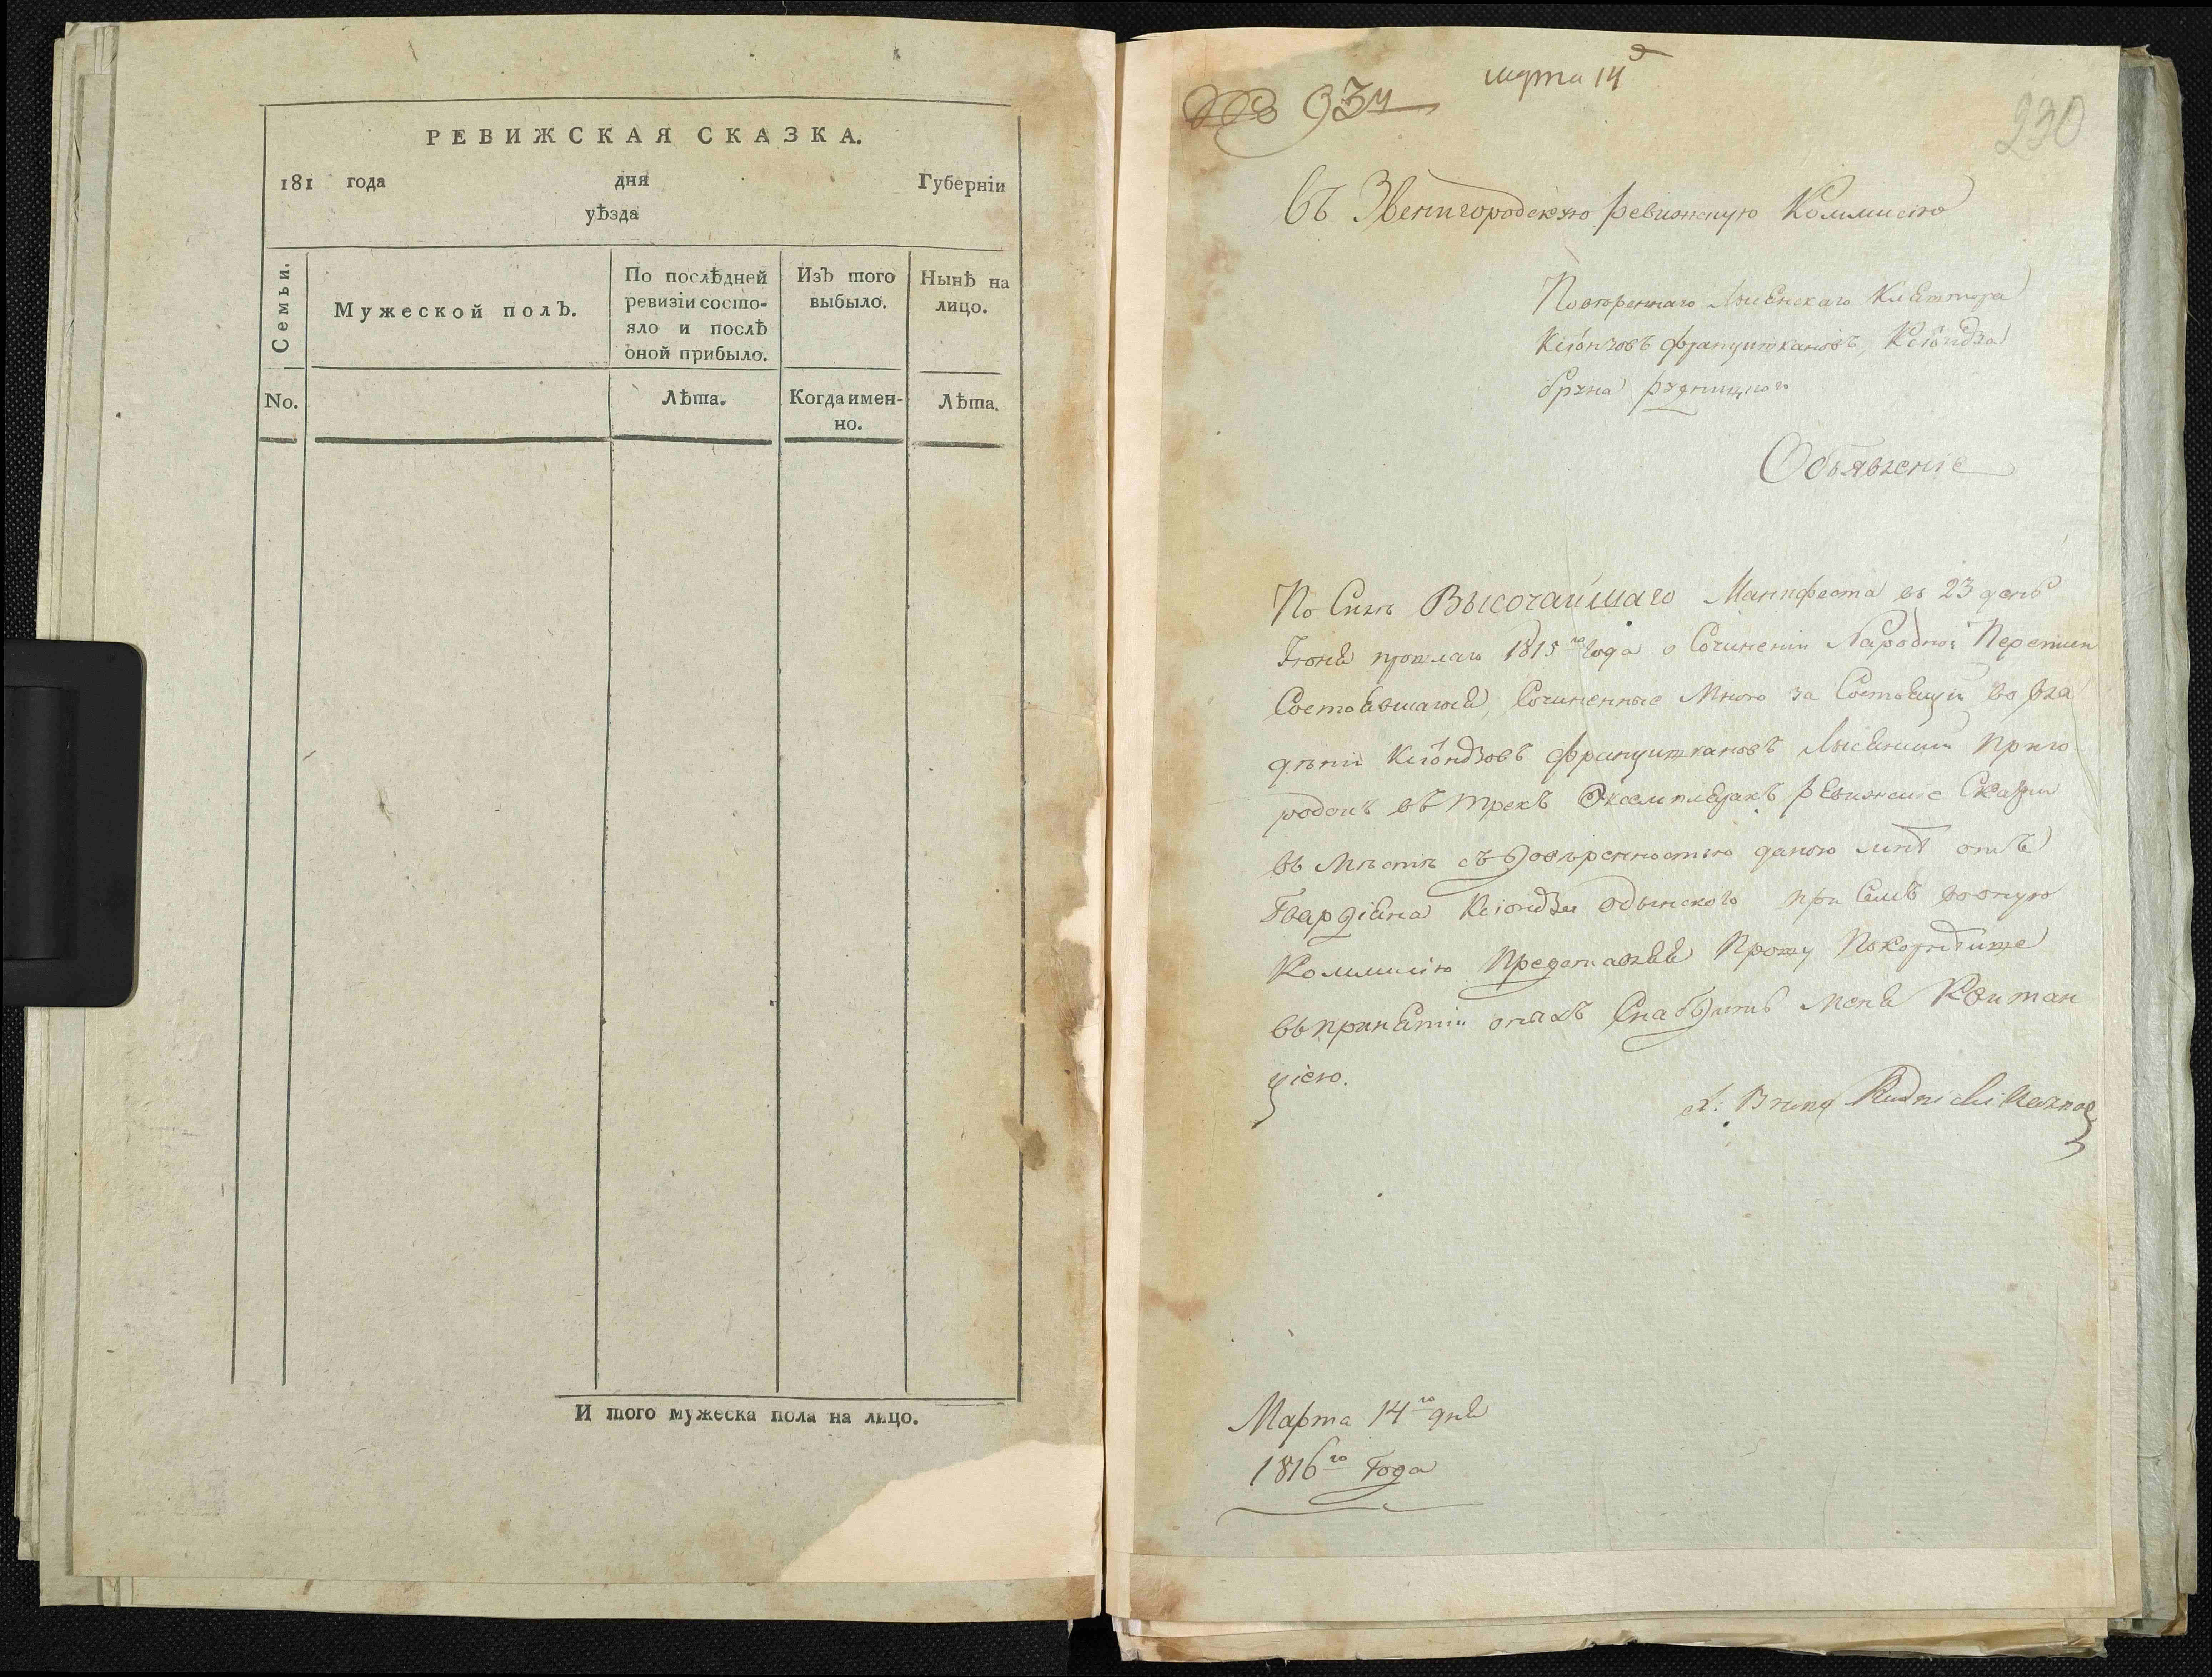 РЕВИЖСКАЯ СКАЗКА.
181 года дня Губерніи
уѣзда
Семьи.
Мужеской полъ.
По послѣдней
ревизіи состо-
яло и послѣ
оной прибыло.
Изъ того
выбыло.
Нынѣ на
лицо.
No.
Лѣта.
Когда имен-
но.
Лѣта.
И того мужеска пола на лицо.
марта 14
№ 934
230
Въ Звенигородскую ревизскую Коммисію
Повѣреннаго Лысянскаго Кляштора
Ксіонзовъ францишкановъ, Ксіондза
бруна рудницкого
Объявленіе
По Силѣ Высочайшаго Манифеста въ 23 день
Іюня прошлаго 1815го года о Сочиненіи Народной Переписи
Состоявшагося, Сочиненные Мною за Состоящій во вла
дѣніи Ксіондзовъ францишкановъ Лысянскій приго
родокъ въ трехъ Экземплярахъ ревизскіе Сказки
въ Мѣстѣ съ довѣренностью даною мнѣ отъ
Гвардіяна Ксіондза Одынского при Семъ воону
Коммисію Представляя Прошу Покорнѣише
въ принятіи оныхъ Снабдить меня Квитан
ціею.
X: Bruno Rudnicki
Марта 14го дня
1816го Года